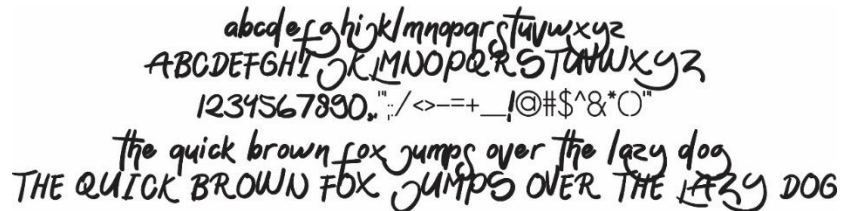 abcdefghijklmnopqrstuvwxyz
ABCDEFGHIJKLMNOPQRSTUVWXYZ
1234567890.,"';:/<>–=+__!@#$^&*()"
the quick brown fox jumps over the lazy dog
THE QUICK BROWN FOX JUMPS OVER THE LAZY DOG